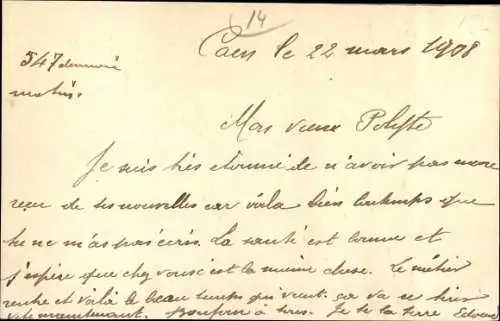 14
Caen le 22 mars 1908
547
matin.
Mon vieux
Je suis très étonné de n'avoir pas encore
reçu de tes nouvelles car voila bien lontemps que
tu ne m'as pas écris. La santé est bonne et
j'espère que chez vous c'est la même chose. Le métier
rentre et voilà le beau temps qui vient. ça va se tirer
vite maintenant. Bonjour à tous. Je te la serre